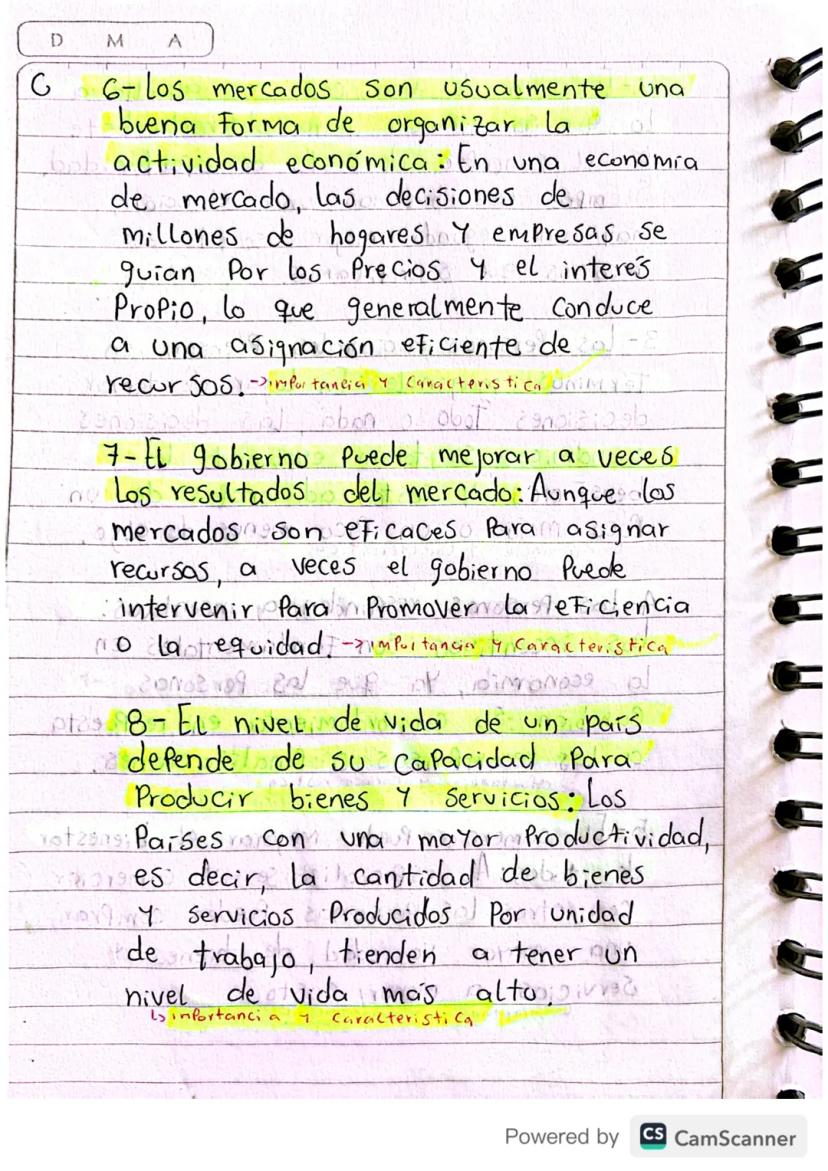 D M A
C 6-Los mercados son usualmente una
buena forma de organizar la
actividad económica: En una economía
de mercado, las decisiones de
millones de hogares y empresas se
guían por los precios y el interés
propio, lo que generalmente conduce
a una asignación eficiente de
recursos. → importancia y Característica
7-El gobierno puede mejorar a veces
los resultados del mercado: Aunque los
mercados son eficaces para asignar
recursos, a veces el gobierno puede
intervenir para promover la eficiencia
o la equidad. → importancia y Característica
8-El nivel de vida de un país
depende de su capacidad para
producir bienes y servicios: Los
países con una mayor productividad,
es decir, la cantidad de bienes
y servicios producidos por unidad
de trabajo, tienden a tener un
nivel de vida más alto.
↳ importancia y característica
Powered by CS CamScanner